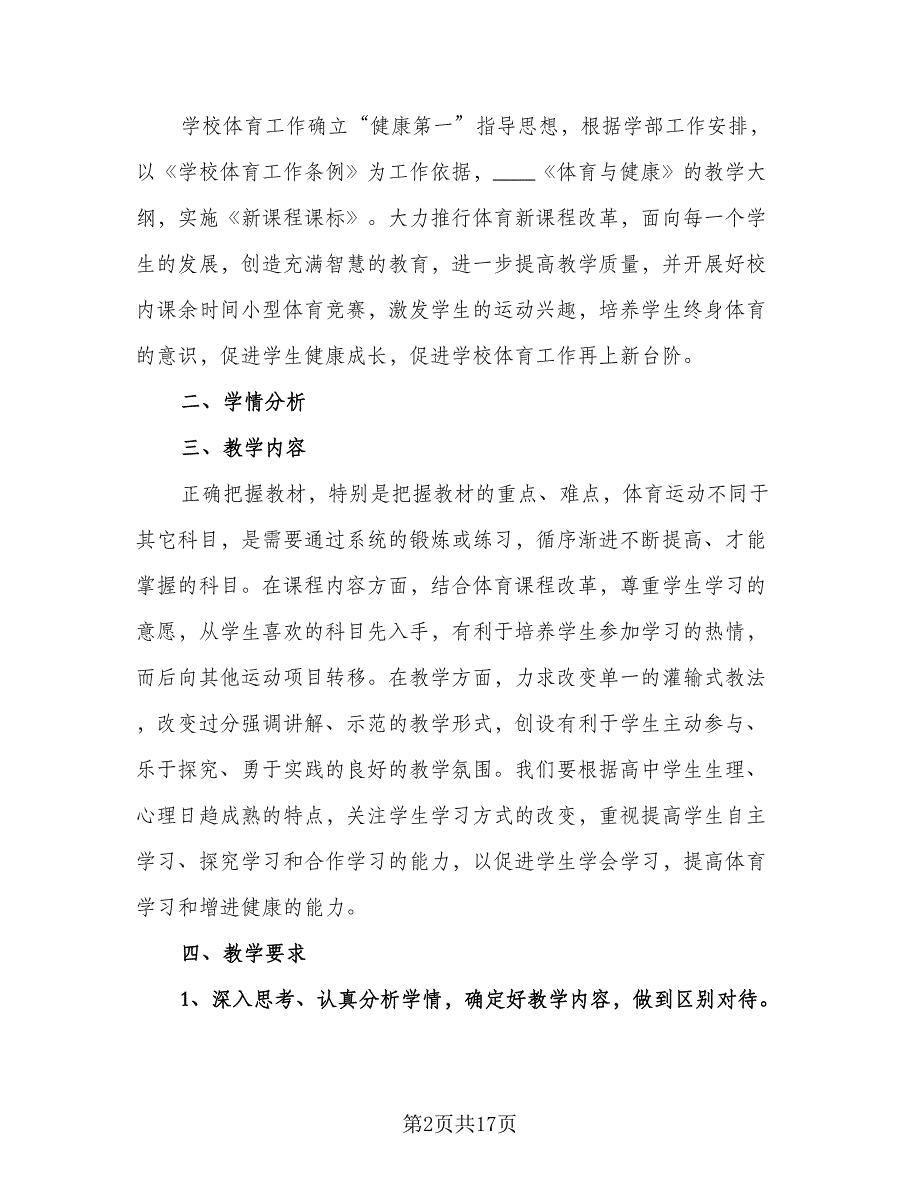 学校体育工作确立“健康第一”指导思想，根据学部工作安排，
以《学校体育工作条例》为工作依据，____《体育与健康》的教学大
纲，实施《新课程课标》。大力推行体育新课程改革，面向每一个学
生的发展，创造充满智慧的教育，进一步提高教学质量，并开展好校
内课余时间小型体育竞赛，激发学生的运动兴趣，培养学生终身体育
的意识，促进学生健康成长，促进学校体育工作再上新台阶。
二、学情分析
三、教学内容
正确把握教材，特别是把握教材的重点、难点，体育运动不同于
其它科目，是需要通过系统的锻炼或练习，循序渐进不断提高、才能
掌握的科目。在课程内容方面，结合体育课程改革，尊重学生学习的
意愿，从学生喜欢的科目先入手，有利于培养学生参加学习的热情，
而后向其他运动项目转移。在教学方面，力求改变单一的灌输式教法
，改变过分强调讲解、示范的教学形式，创设有利于学生主动参与、
乐于探究、勇于实践的良好的教学氛围。我们要根据高中学生生理、
心理日趋成熟的特点，关注学生学习方式的改变，重视提高学生自主
学习、探究学习和合作学习的能力，以促进学生学会学习，提高体育
学习和增进健康的能力。
四、教学要求
1、深入思考、认真分析学情，确定好教学内容，做到区别对待。
第2页共17页